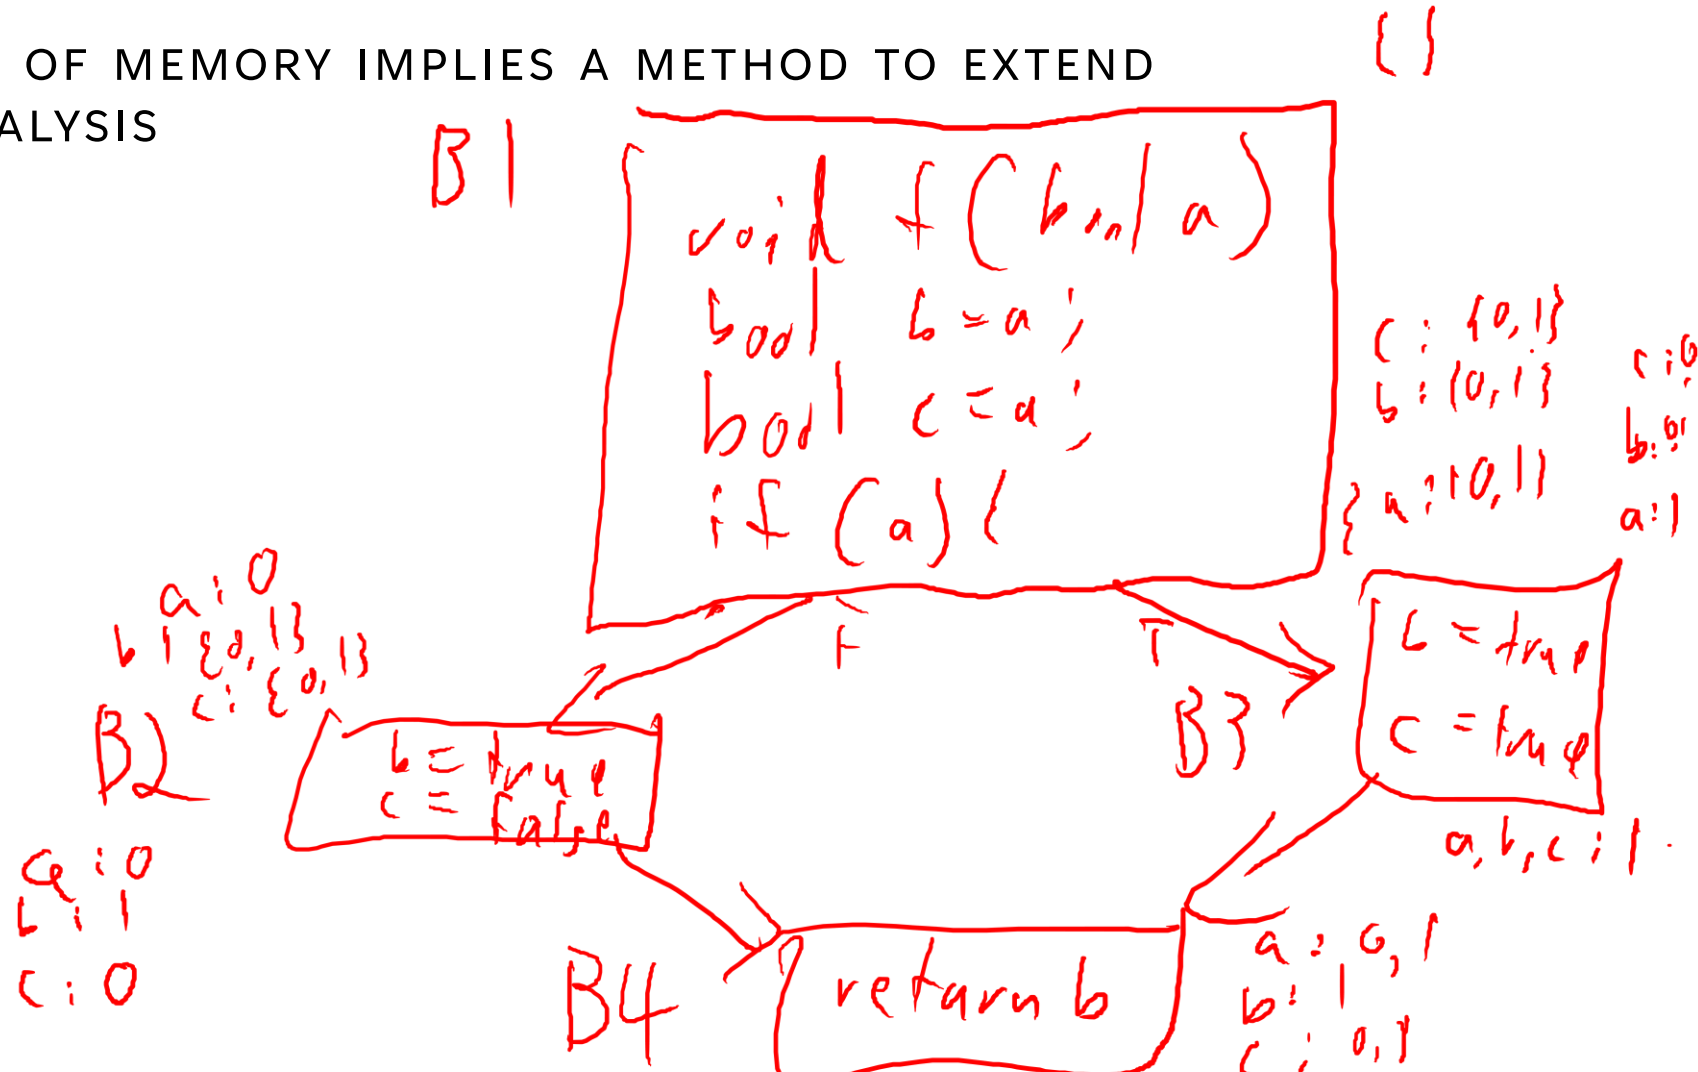 OF MEMORY IMPLIES A METHOD TO EXTEND
ALYSIS
{ }
B1
void f(bool a)
bool b = a;
bool c = a;
if (a) {
c: {0,1}
b: {0,1}
} a: {0,1}
c: 0
b: 0
a: 1
F
T
a: 0
b: {0,1}
c: {0,1}
B2
b = true
c = false
a: 0
b: 1
c: 0
B3
b = true
c = true
a, b, c: 1
B4
return b
a: 0,1
b: 1
c: 0,1